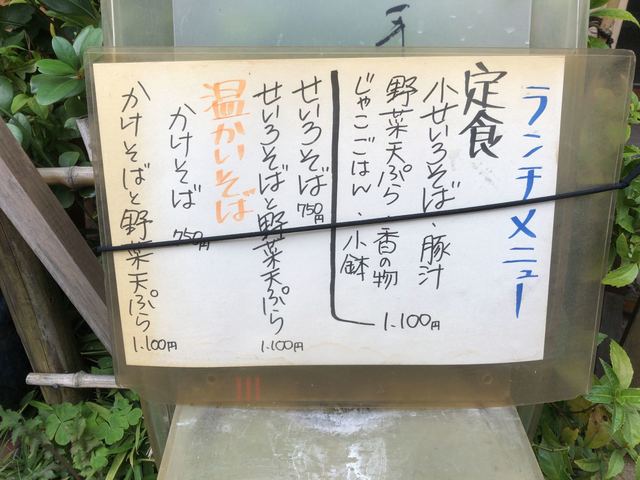 ランチメニュー
定食
小せいろそば・豚汁
野菜天ぷら・香の物
じゃこごはん・小鉢
1.100円
せいろそば 750円
せいろそばと野菜天ぷら
1.100円
温かいそば
かけそば 750円
かけそばと野菜天ぷら
1.100円